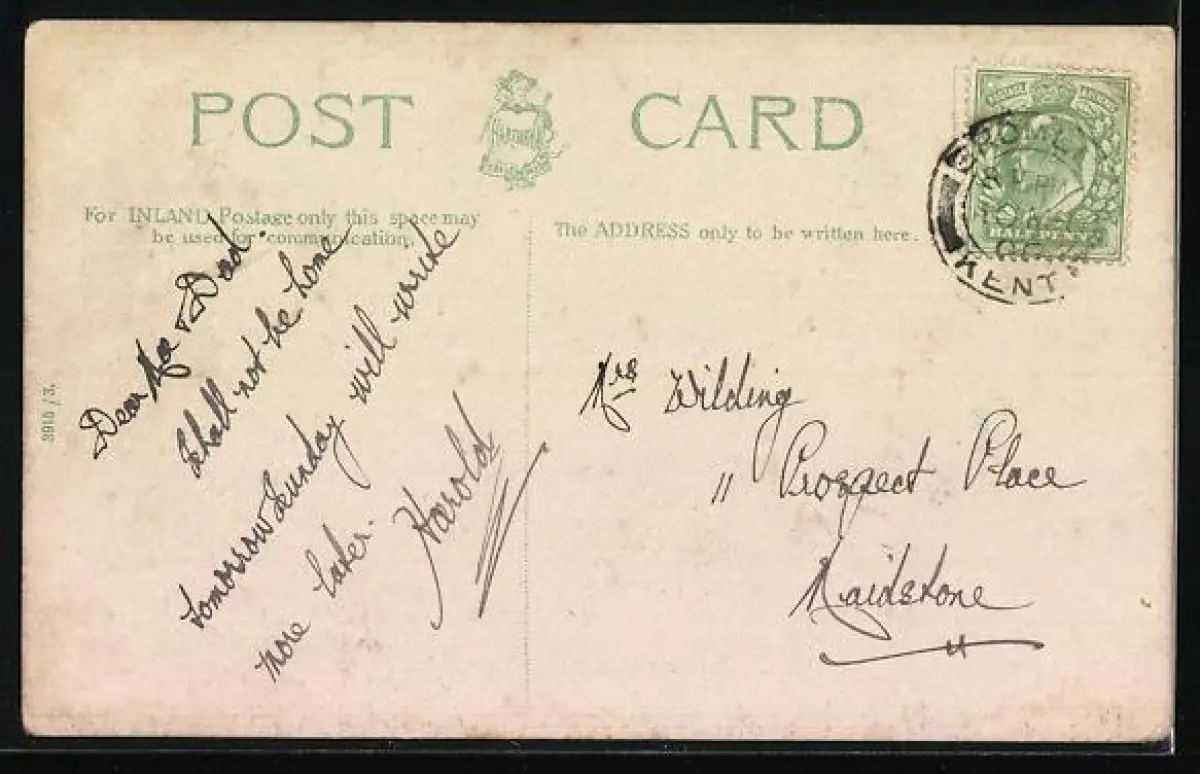 POST CARD
For INLAND Postage only this space may
be used for communication.
The ADDRESS only to be written here.
HALFPENNY
KENT
3915/3.
Dear Ma & Dad.
Shall not be home
tomorrow Sunday will write
more later.
Harold
Mrs Wilding
11 Prospect Place
Maidstone